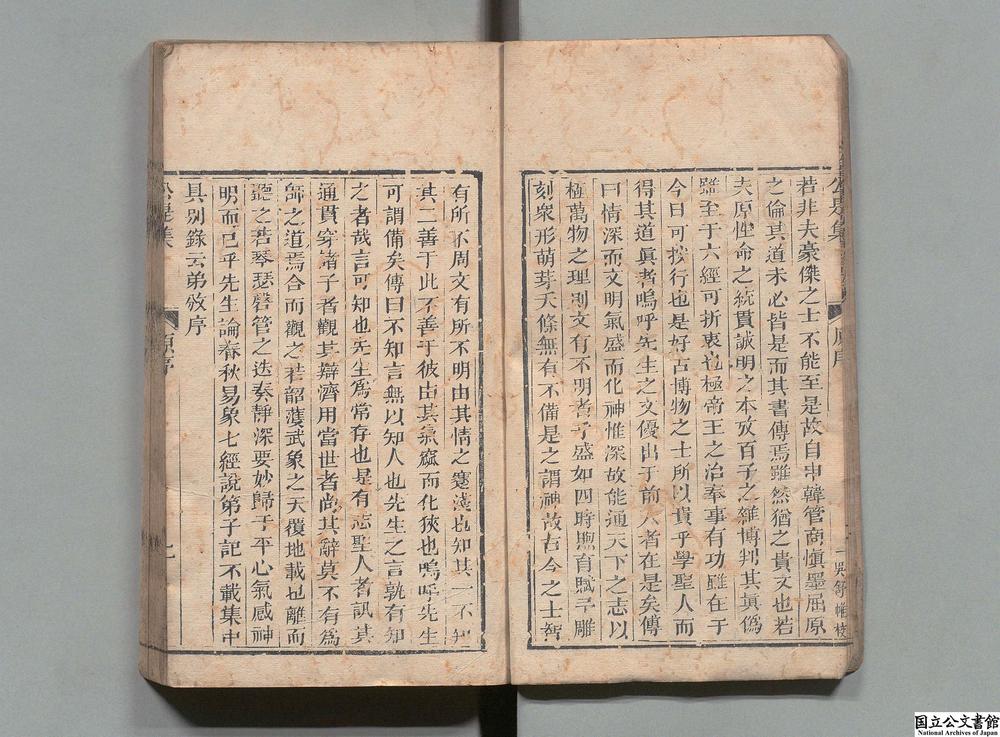 公是集
原序
一吳舒帷校
若非夫豪傑之士不能至是故自申韓管商愼墨屈原
之倫其道未必皆是而其書傳焉雖然猶之貴文也若
夫原性命之統貫誠明之本攷百子之雜博判其眞僞
雖至于六經可折衷也極帝王之治奉事有功雖在于
今日可按行也是好古博物之士所以貴乎學聖人而
得其道眞者嗚呼先生之文優出于前人者在是矣傳
曰情深而文明氣盛而化神惟深故能通天下之志以
極萬物之理則文有不明者乎盛如四時煦育賦予雕
刻衆形萌芽天條無有不備是之謂神故古今之士智
有所不周文有所不明由其情之蹇淺也知其一不知
其二善于此不善于彼由其氣窳而化狹也嗚呼先生
可謂備矣傳曰不知言無以知人也先生之言孰有知
之者哉言可知也先生爲常存也是有志聖人者訊其
通貫穿諸子者觀其辯濟用當世者尚其辭莫不有爲
師之道焉合而觀之若韶濩武象之天覆地載也離而
聽之若琴瑟磬管之迭奏靜深要妙歸于平心氣感神
明而已乎先生論春秋易象七經說弟子記不載集中
具別錄云弟攽序
公是集
原序
国立公文書館
National Archives of Japan